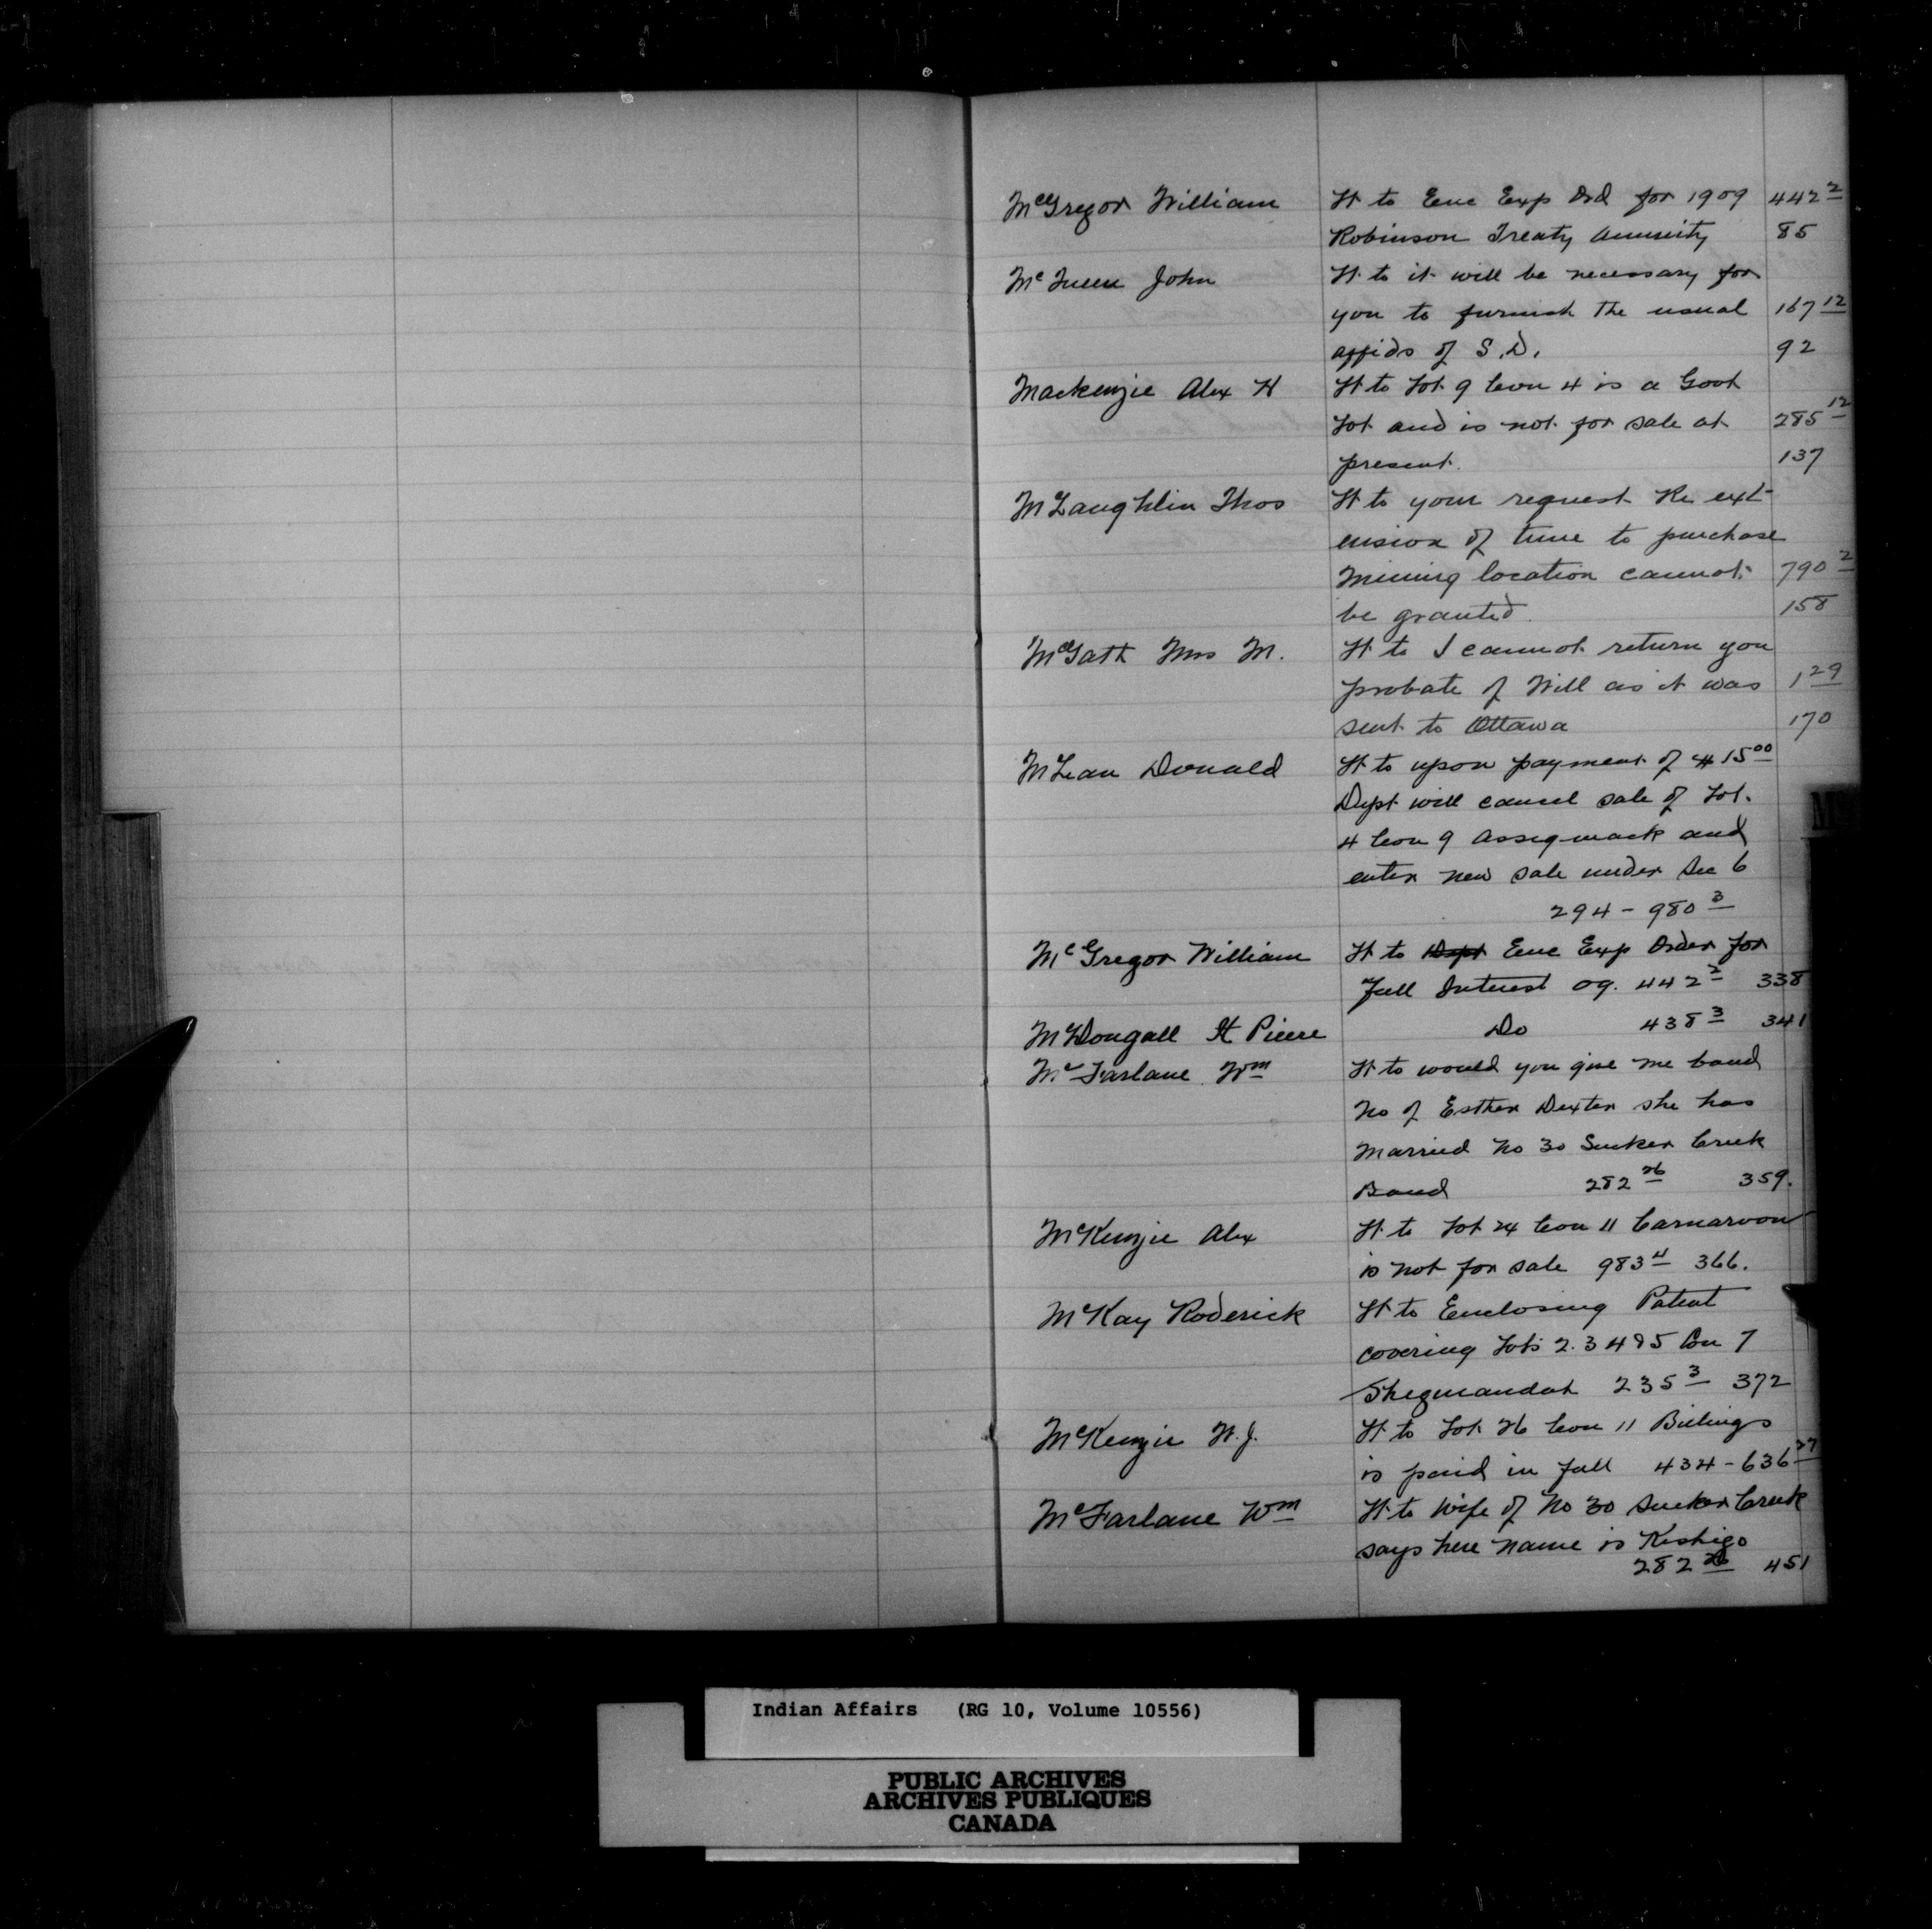 McGregor William Lt to Enc Exp Ord for 1909 442 2
Robinson Treaty Annuity 85
Mc Queen John Lt to it will be necessary for
you to furnish the usual 167 12
affids of S.D. 92
Mackenzie Alex H Lt to Lot 9 Con 4 is a Govt
Lot and is not for sale at 285 12
present. 137
McLaughlin Thos Lt to your request Re ext-
ension of time to purchase
Mining location cannot 790 2
be granted. 158
McGath Mrs M. Lt to I cannot return you
probate of Will as it was 1 29
sent to Ottawa 170
McLean Donald Lt to upon payment of $15 00
Dept will cancel sale of Lot.
4 Con 9 Assiginack and
enter new sale under Sec 6
294 - 980 3
McGregor William Lt to Dept Enc Exp Order for
Full Interest 09. 442 2 338
McDougall St Pierre Do 438 3 341
McFarlane Wm Lt to would you give me band
No of Esther Dexter she has
Married No 30 Sucker Creek
Band 282 26 359.
McKenzie Alex Lt to Lot 24 Con 11 Carnarvon
is not for sale 983 4 366.
McKay Roderick Lt to Enclosing Patent
covering Lots 2. 3 4 & 5 Con 7
Sheguiandah 235 3 372
McKenzie W.J. Lt to Lot 26 Con 11 Billings
is paid in full 434 - 636 27
McFarlane Wm Lt to Wife of No 30 Sucker Creek
says here name is Keshigo
282 26 451
Indian Affairs (RG 10, Volume 10556)
PUBLIC ARCHIVES
ARCHIVES PUBLIQUES
CANADA